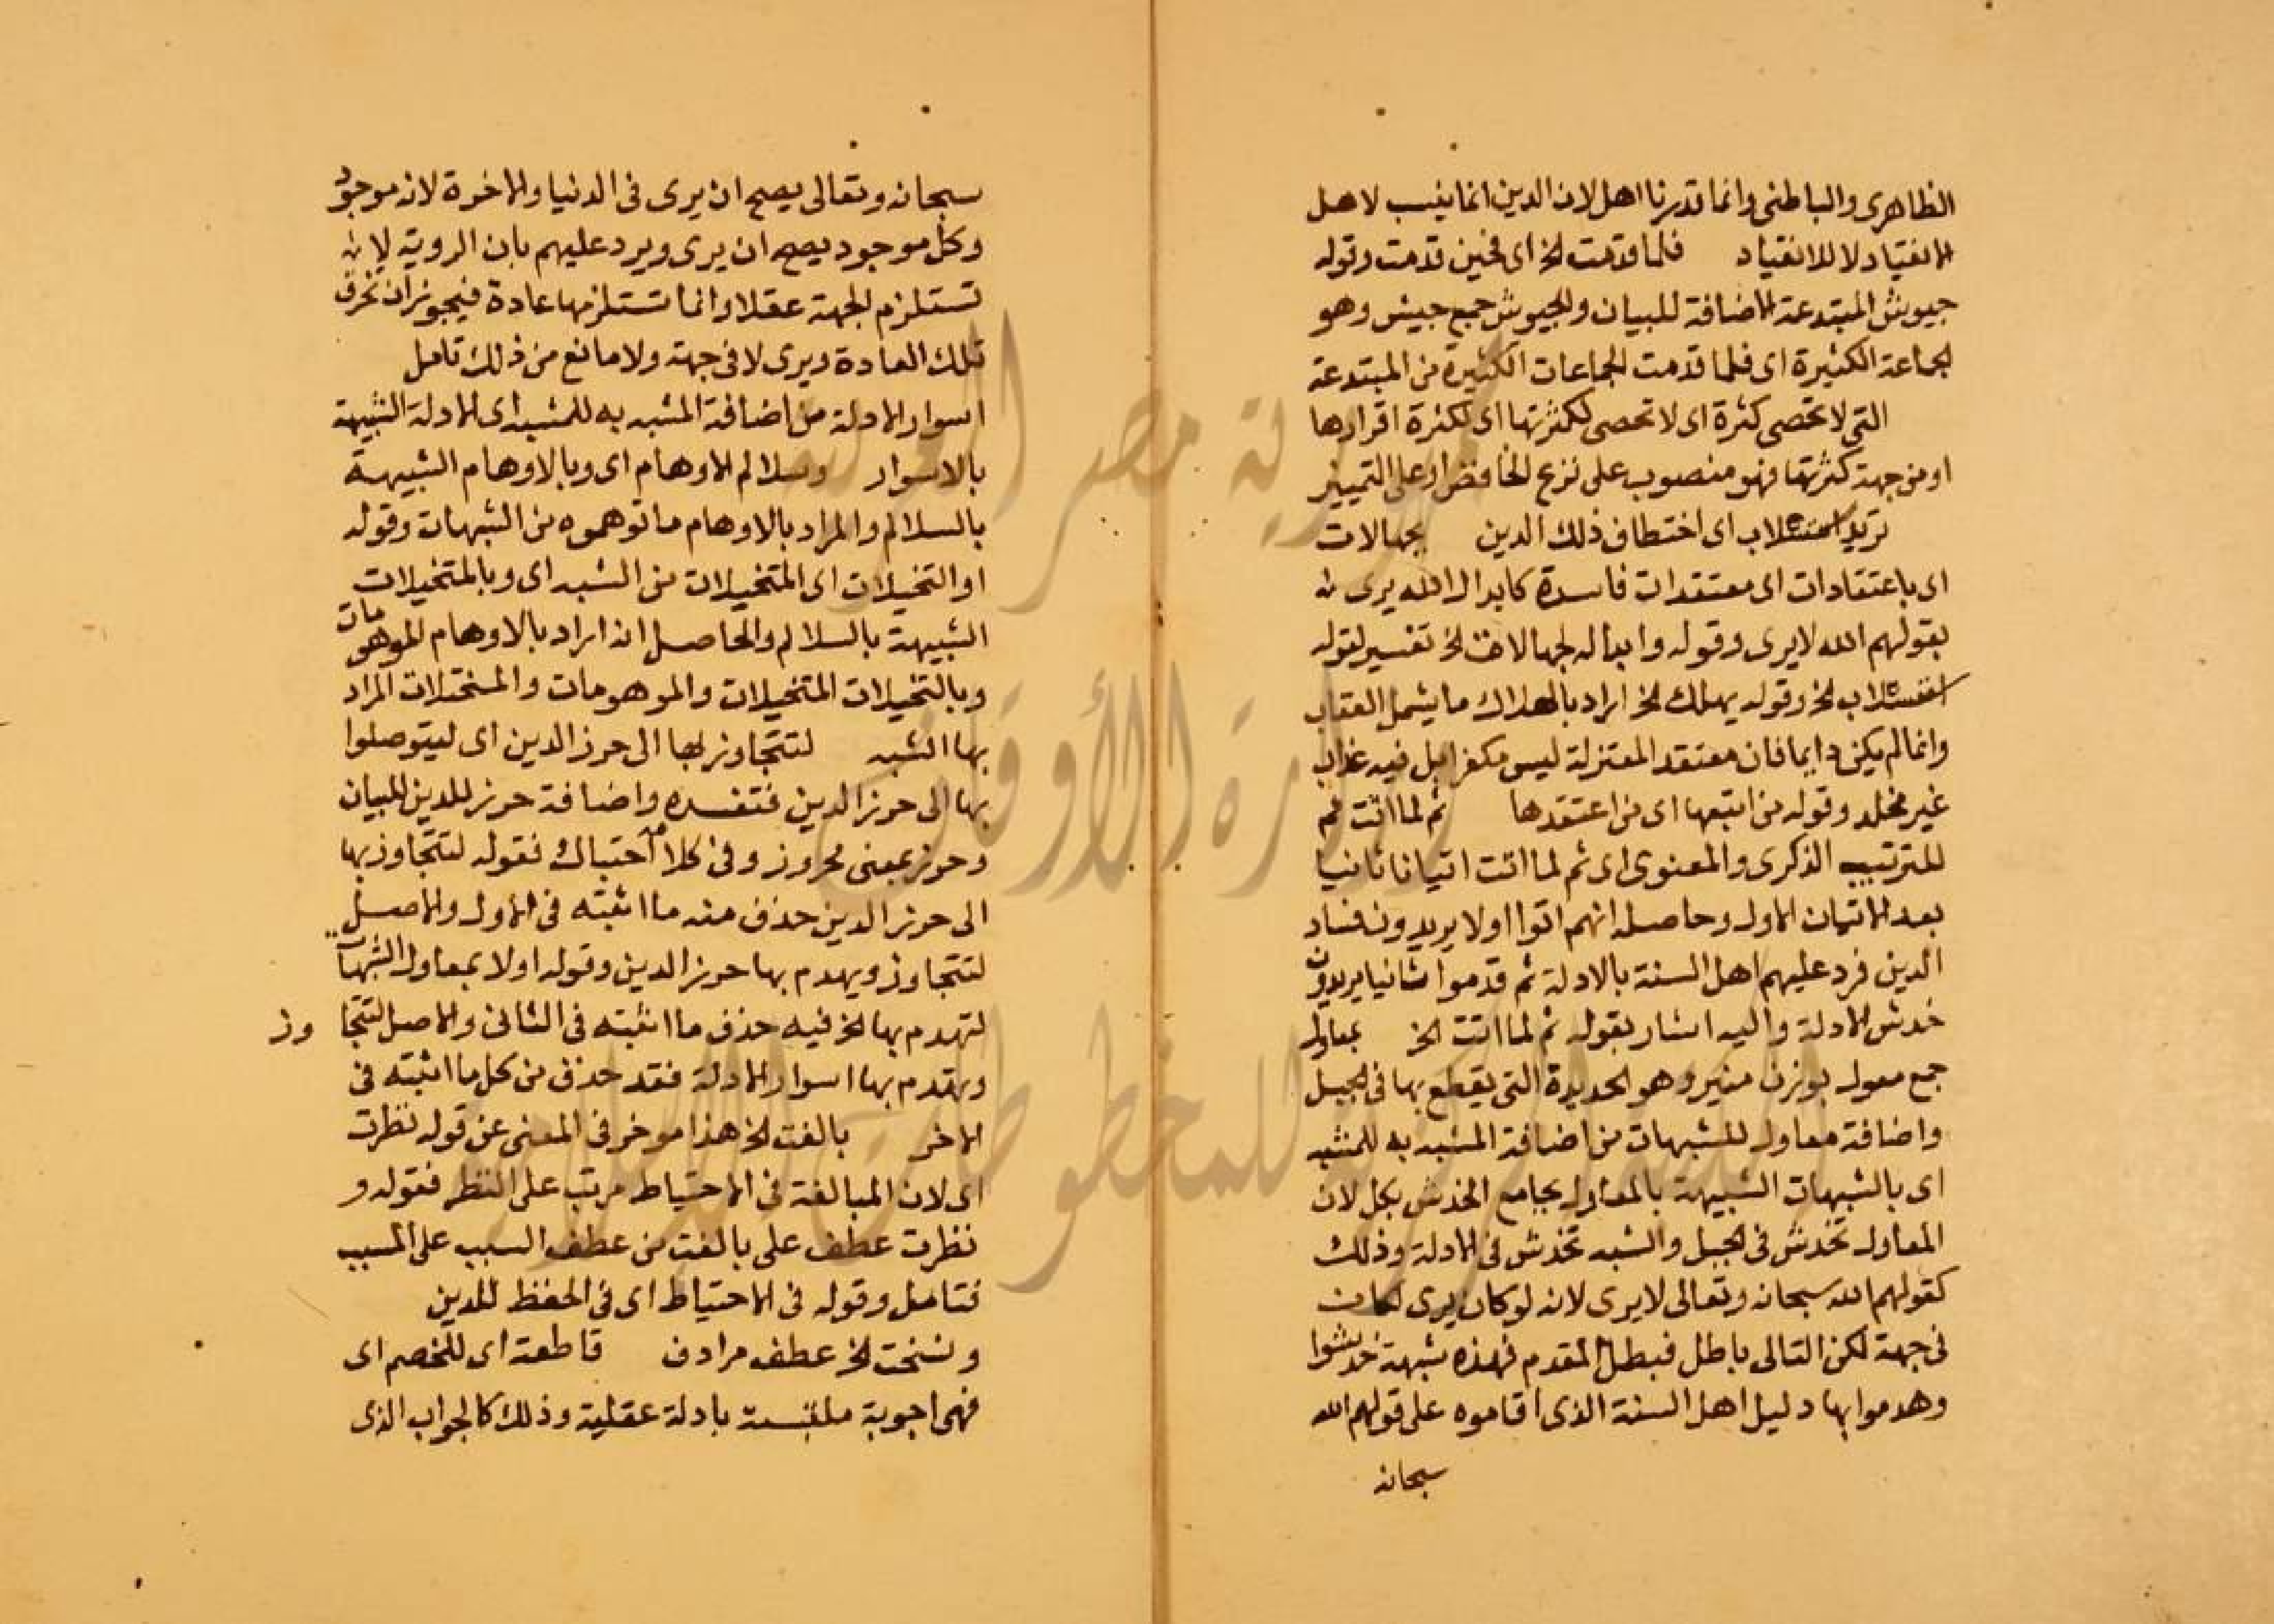 الظاهرى والباطنى وانما قدرنا اهل لان الدين انما ينسب لاهل
الانقياد لا للانقياد فلما قدمت الخ اى فحين قدمت وقوله
جيوش المبتدعة الاضافة للبيان والجيوش جمع جيش وهو
الجماعة الكثيرة اى فلما قدمت الجماعات الكثيرة من المبتدعة
التى لا تحصى كثرة اى لا تحصى لكثرتها اى لكثرة افرادها
او من جهة كثرتها فهو منصوب على نزع الخافض او على التمييز
تريد استلاب اى اختطاف ذلك الدين بجهالات
اى باعتقادات اى معتقدات فاسدة كابدال الله يرى
بقولهم الله لا يرى وقوله وابدال الجهالات الخ تفسير لقوله
استلاب الخ وقوله يهلك الخ اراد بالهلاك ما يشمل العقاب
وانما لم يكن دايما فان معتقد المعتزلة ليس مكفرا بل فيه عذاب
غير مخلد وقوله من اتبعها اى من اعتقدها ثم لما اتت ثم
للترتيب الذكرى والمعنوى اى ثم لما اتت اتيانا ثانيا
بعد الاتيان الاول وحاصله انهم اتوا اولا يريدون فساد
الدين فرد عليهم اهل السنة بالادلة ثم قدموا ثانيا يريدون
خدش الادلة واليه اشار بقوله ثم لما اتت الخ بمعاول
جمع معول بوزن منبر وهو الحديدة التى يقطع بها فى الجبل
واضافة معاول للشبهات من اضافة المشبه به للمشبه
اى بالشبهات الشبيهة بالمعاول بجامع الخدش بكل لان
المعاول تخدش فى الجبل والشبه تخدش فى الادلة وذلك
كقولهم الله سبحانه وتعالى لا يرى لانه لو كان يرى لكان
فى جهة لكن التالى باطل فبطل المقدم فهذه شبهة خدشوا
وهدموا بها دليل اهل السنة الذى اقاموه على قولهم الله
سبحانه
سبحانه وتعالى يصح ان يرى فى الدنيا والاخرة لانه موجود
وكل موجود يصح ان يرى ويرد عليهم بان الروية لا
تستلزم الجهة عقلا وانما تستلزمها عادة فيجوز ان تخرق
تلك العادة ويرى لا فى جهة ولا مانع من ذلك تامل
اسوار الادلة من اضافة المشبه به للمشبه اى الادلة الشبيهة
بالاسوار وسلالم الاوهام اى وبالاوهام الشبيهة
بالسلالم والمراد بالاوهام ما توهموه من الشبهات وقوله
او التخيلات اى المتخيلات من الشبه اى وبالمتخيلات
الشبيهة بالسلالم والحاصل انه اراد بالاوهام الموهومات
وبالتخيلات المتخيلات والموهومات والمتخيلات المراد
بها الشبه لتتجاوز بها الى حرز الدين اى ليتوصلوا
بها الى حرز الدين فتفسده واضافة حرز للدين للبيان
وحرز بمعنى محروز وفى كلامه احتباك فقوله لتتجاوز بها
الى حرز الدين حذف منه ما اثبته فى الاول والاصل
لتتجاوز ويهدم بها حرز الدين وقوله اولا بمعاول الشبهات
لتهدم بها الخ فيه حذف ما اثبته فى الثانى والاصل لتتجاوز
وتهدم بها اسوار الادلة فقد حذف من كل ما اثبته فى
الاخر بالغت الخ هذا موخر فى المعنى عن قوله نظرت
اى لان المبالغة فى الاحتياط مرتب على النظر فقوله و
نظرت عطف على بالغت من عطف السبب على المسبب
فتامل وقوله فى الاحتياط اى فى الحفظ للدين
ونسخت الخ عطف مرادف قاطعة اى للخصم اى
فهى اجوبة ملتبسة بادلة عقلية وذلك كالجواب الذى